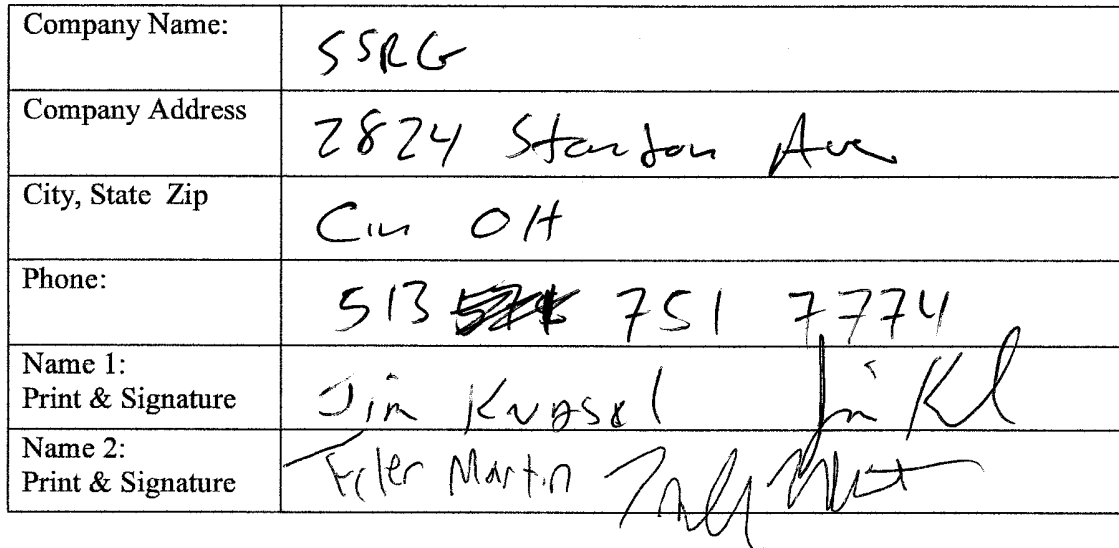 Company Name: SSRG
Company Address 2824 Stanton Ave
City, State Zip Cin OH
Phone: 513 751 7774
Name 1:
Print & Signature Jim
Name 2:
Print & Signature Tyler Martin